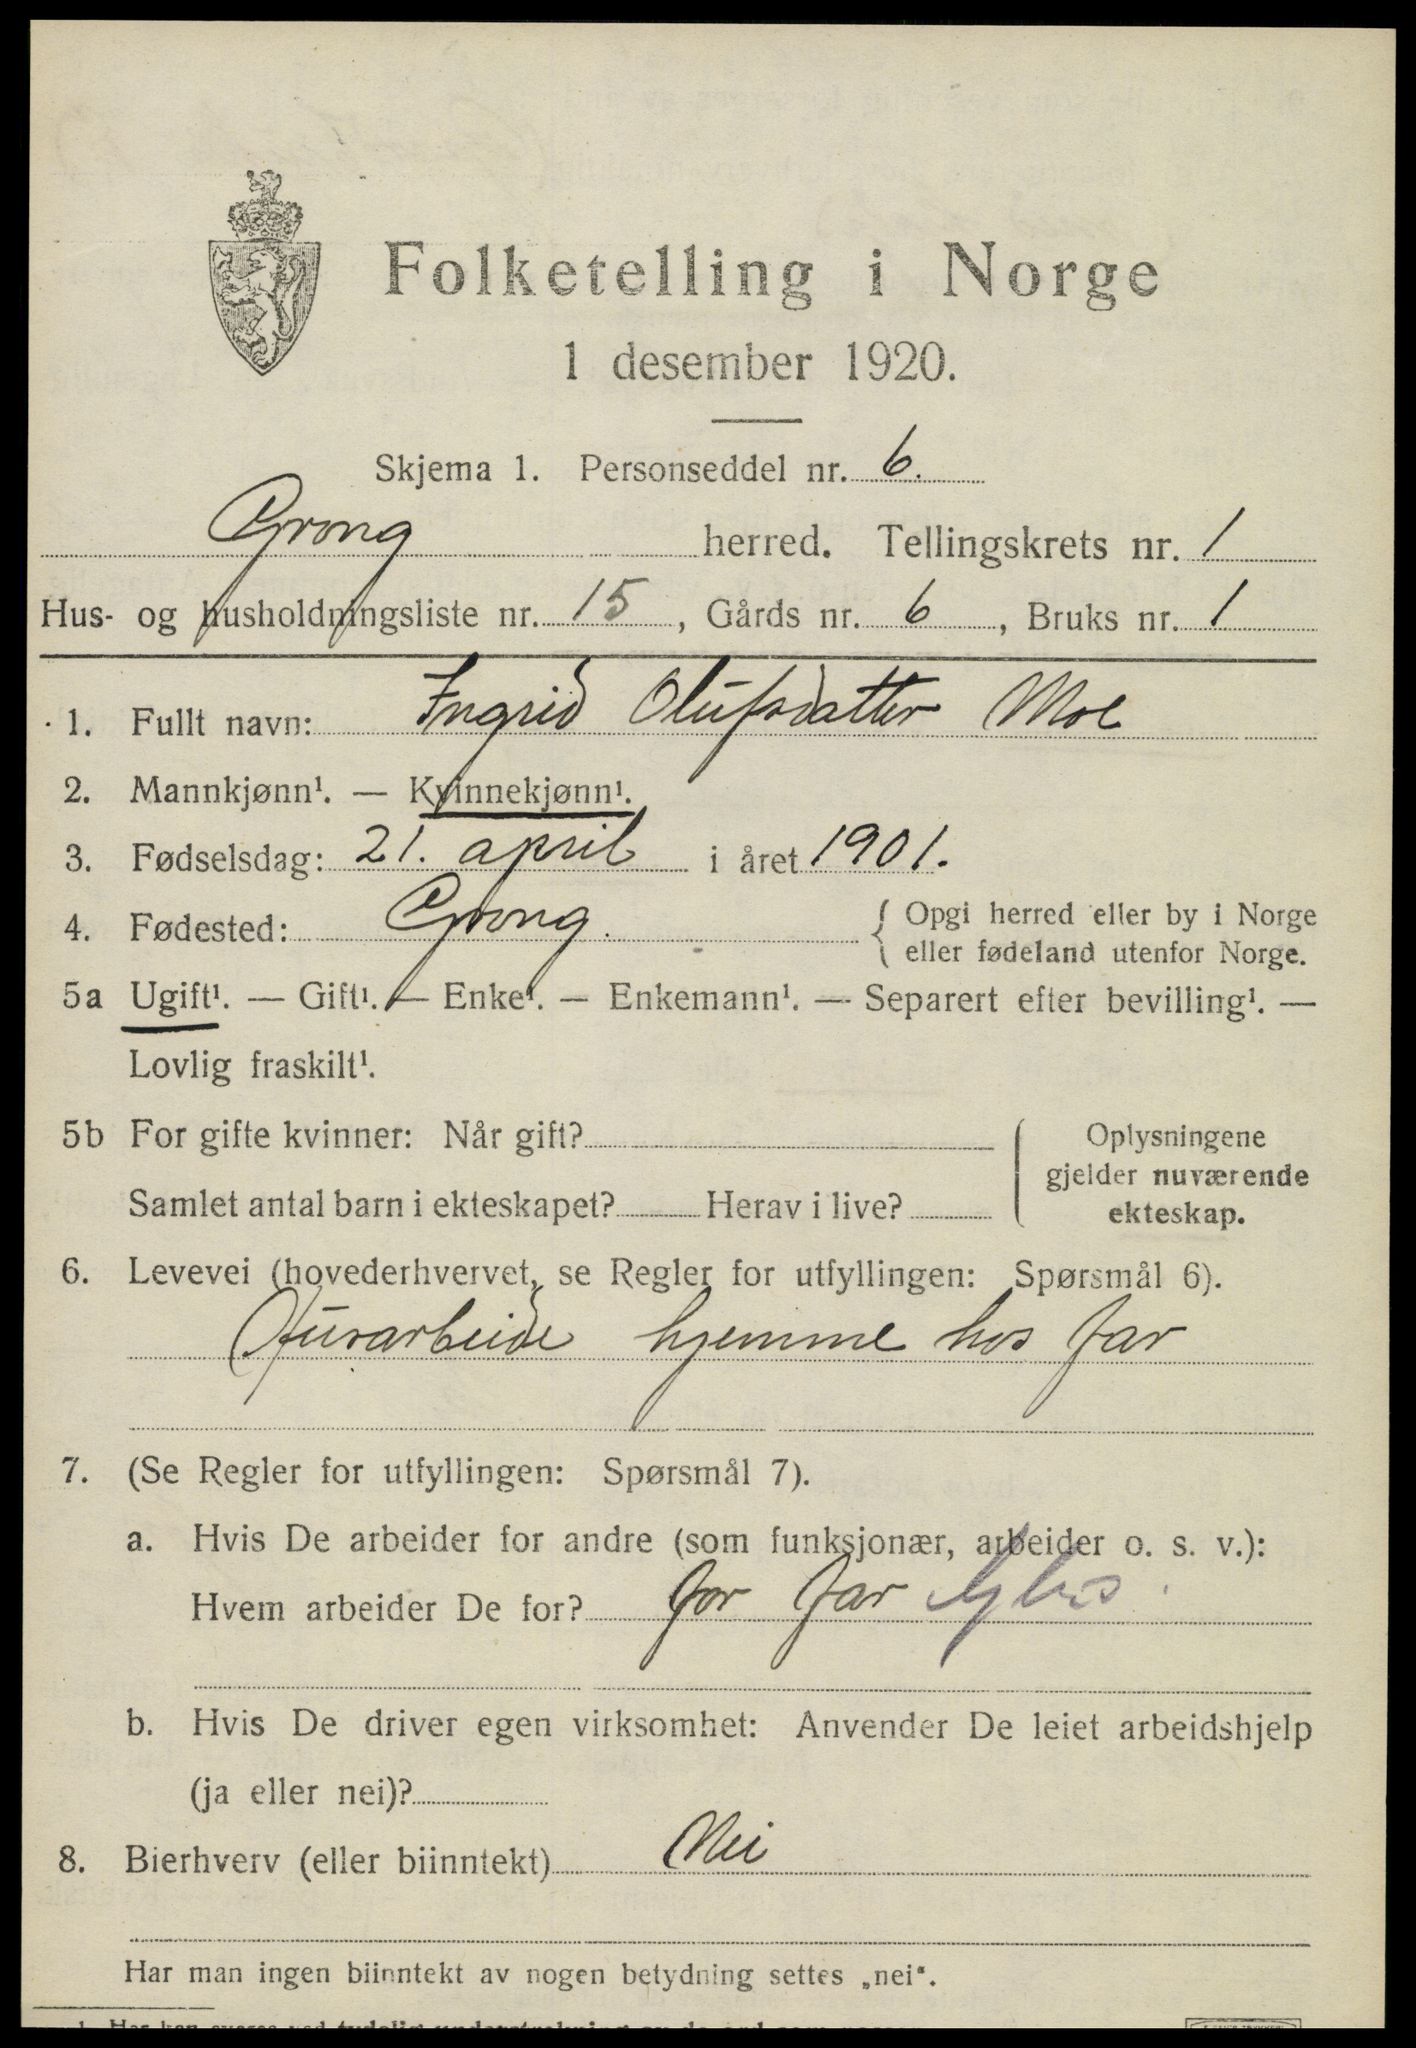 Folketelling i Norge
1 desember 1920.
Skjema 1. Personseddel nr. 6.
Grong herred. Tellingskrets nr. 1
Hus- og husholdningsliste nr. 15, Gårds nr. 6, Bruks nr. 1
1. Fullt navn: Ingrid Olufsdatter Moe
2. Mannkjønn¹. — Kvinnekjønn¹.
3. Fødselsdag: 21. april i året 1901.
4. Fødested: Grong. { Opgi herred eller by i Norge
eller fødeland utenfor Norge.
5a Ugift¹. — Gift¹. — Enke¹. — Enkemann¹. — Separert efter bevilling¹. —
Lovlig fraskilt¹.
5b For gifte kvinner: Når gift?
Samlet antal barn i ekteskapet? Herav i live?
Oplysningene
gjelder nuværende
ekteskap.
6. Levevei (hovederhvervet, se Regler for utfyllingen: Spørsmål 6).
Husarbeide hjemme hos far
7. (Se Regler for utfyllingen: Spørsmål 7).
a. Hvis De arbeider for andre (som funksjonær, arbeider o. s. v.):
Hvem arbeider De for? for far
b. Hvis De driver egen virksomhet: Anvender De leiet arbeidshjelp
(ja eller nei)?
8. Bierhverv (eller biinntekt) Nei
Har man ingen biinntekt av nogen betydning settes „nei“.